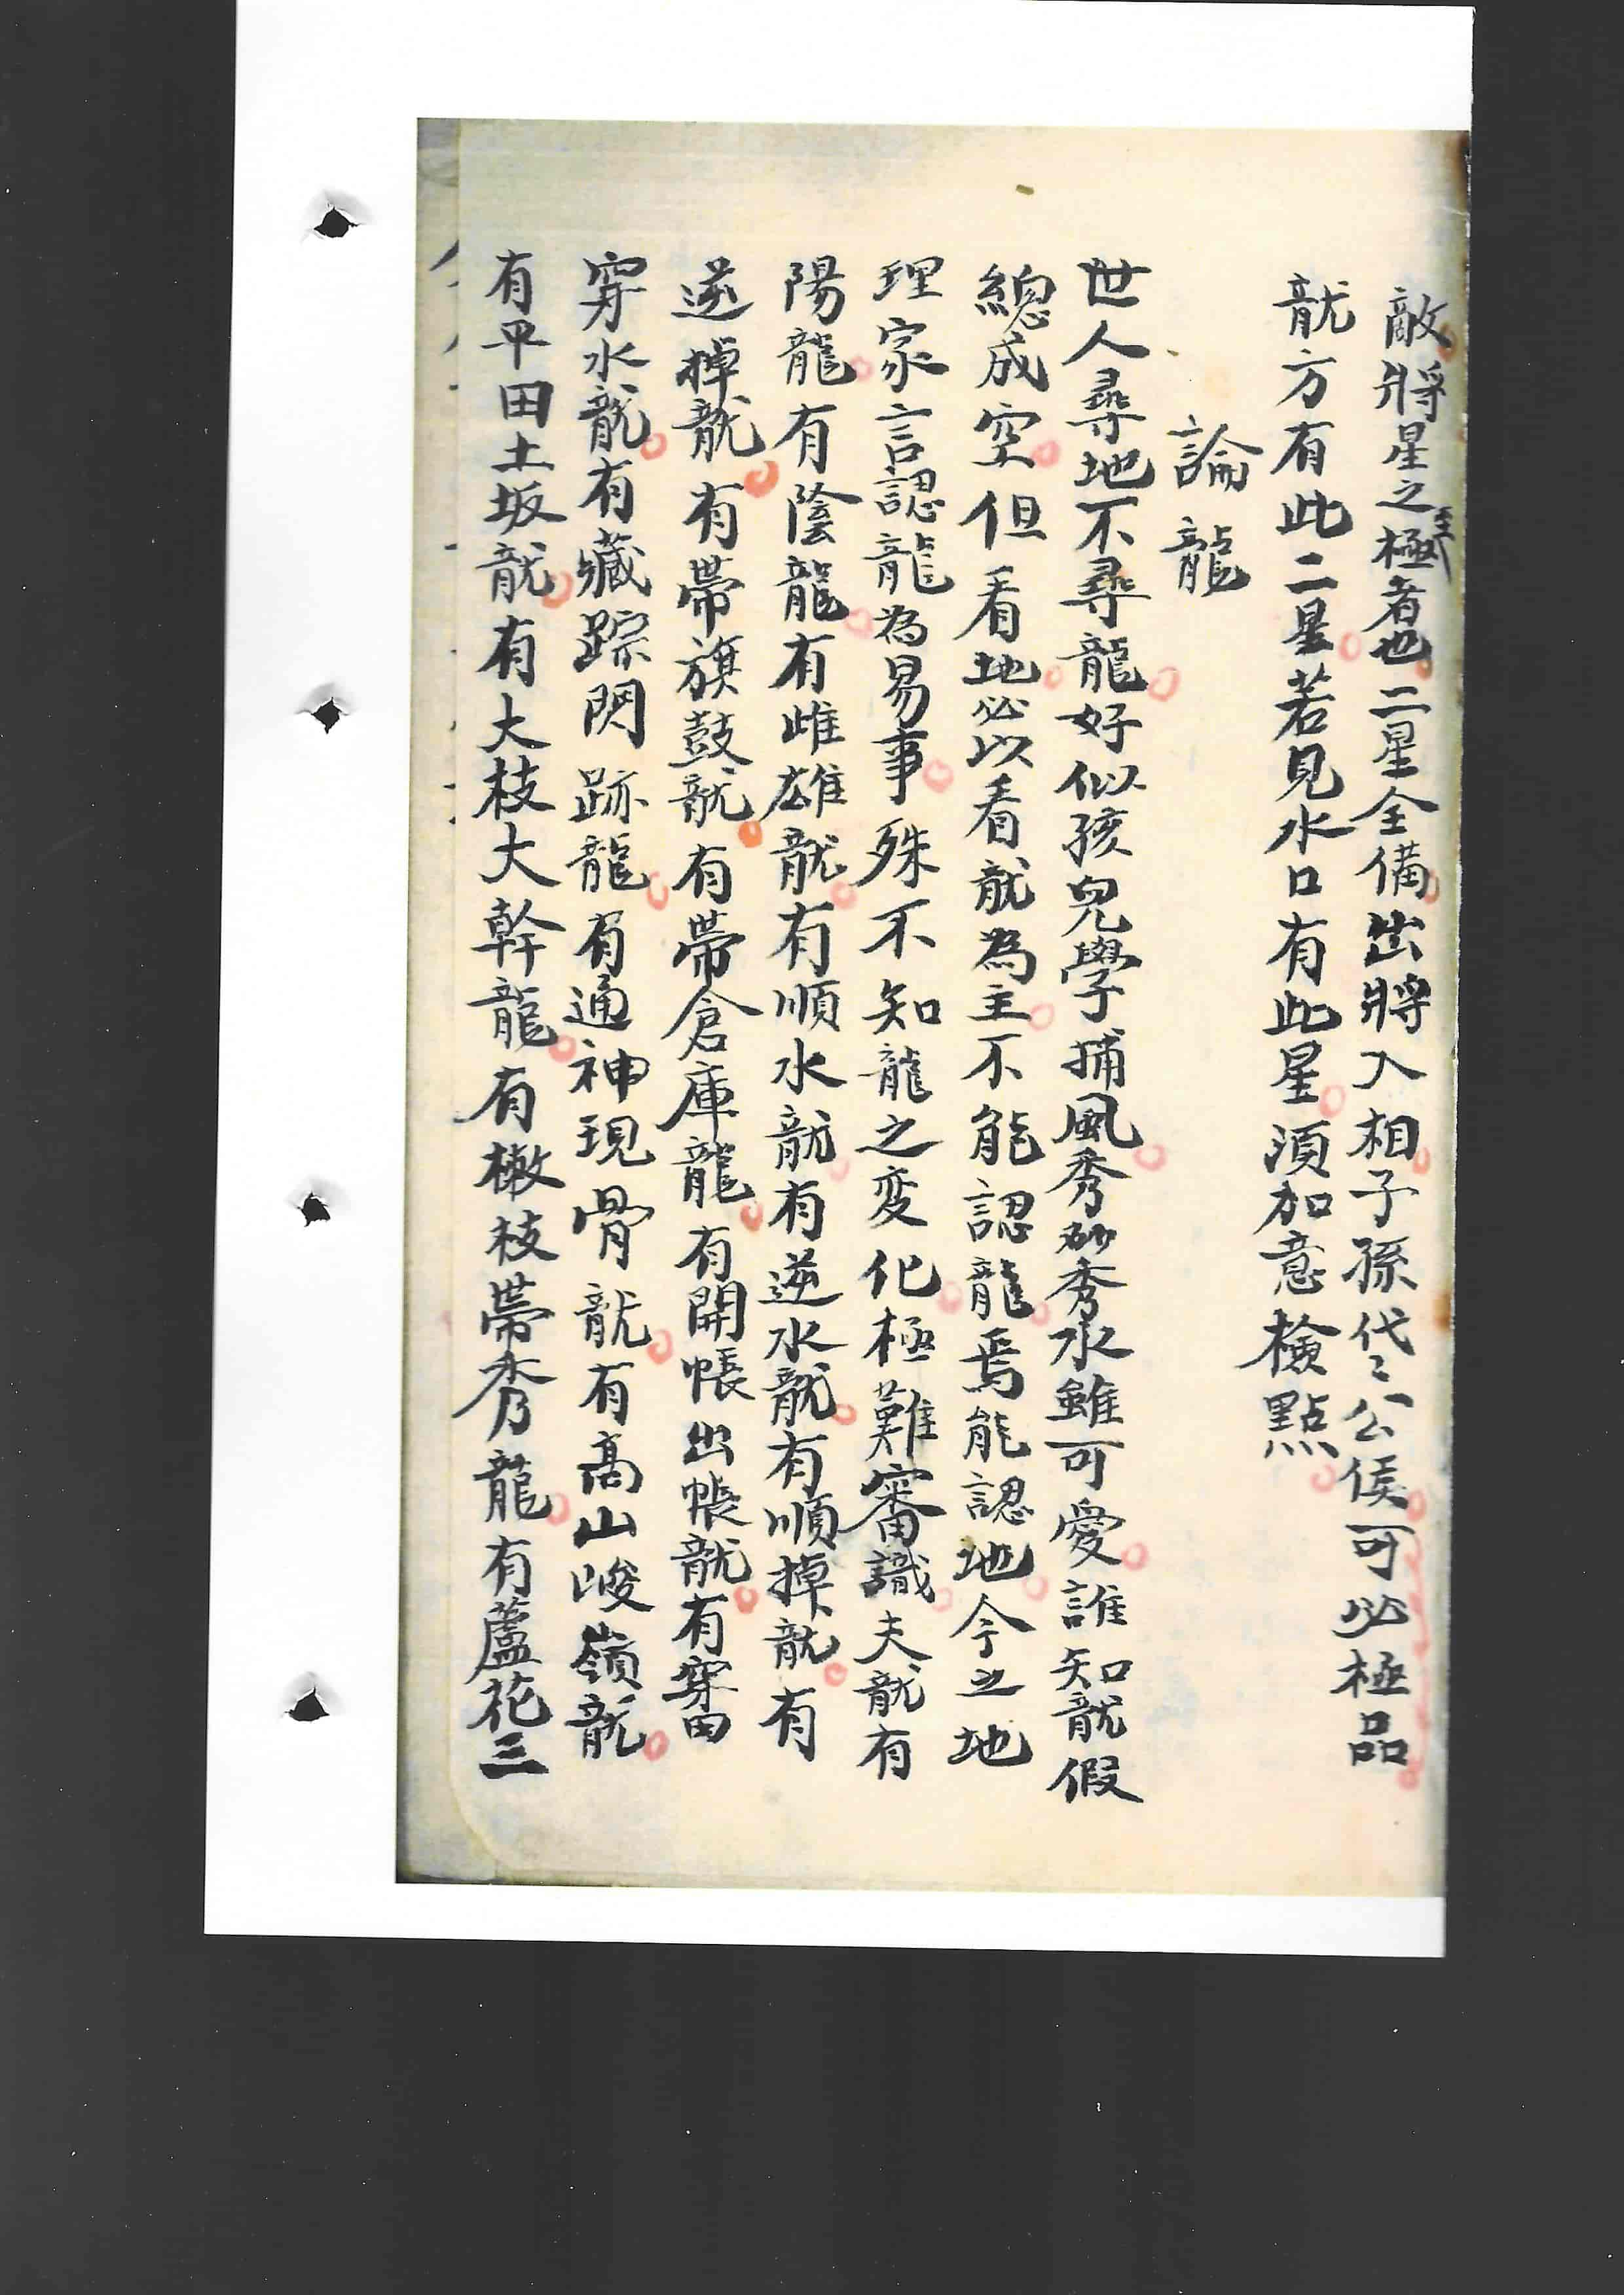 敵將星之至極者也二星全備出將入相子孫代〻公侯可必極品
龍方有此二星若見水口有此星須加意檢點
論龍
世人尋地不尋龍好似孩兒學捕風秀砂秀水雖可愛誰知龍假
總成空但看地必以看龍為主不能認龍焉能認地今之地
理家言認龍為易事殊不知龍之変化極難審識夫龍有
陽龍有陰龍有雌雄龍有順水龍有逆水龍有順掉龍有
逆掉龍有帶旗鼓龍有帶倉庫龍有開帳出帳龍有穿田
穿水龍有藏踪閃跡龍有通神現骨龍有高山峻嶺龍
有平田土坂龍有大枝大幹龍有橄枝帶秀龍有蘆花三